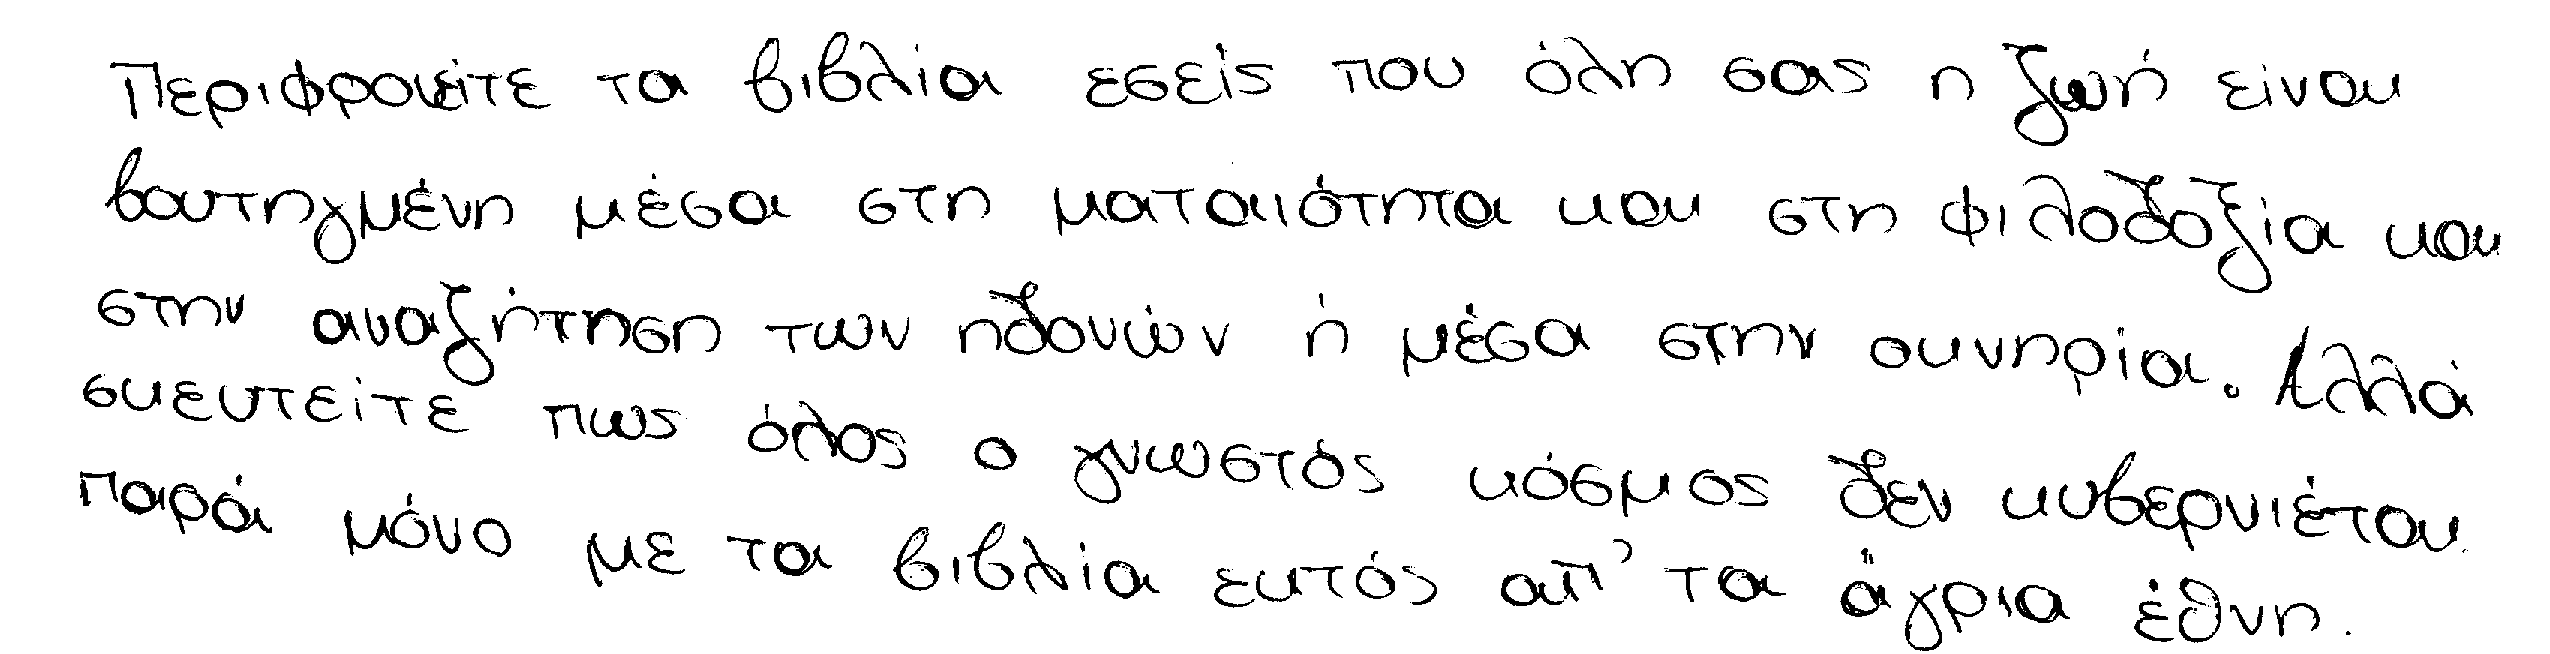 Περιφρονείτε τα βιβλία εσείς που όλη σας η ζωή είναι
βουτηγμένη μέσα στη ματαιότητα και στη φιλοδοξία και
στην αναζήτηση των ηδονών ή μέσα στην οκνηρία. Αλλά
σκευτείτε πως όλος ο γνωστός κόσμος δεν κυβερνιέται
παρά μόνο με τα βιβλία εκτός απ' τα άγρια έθνη.